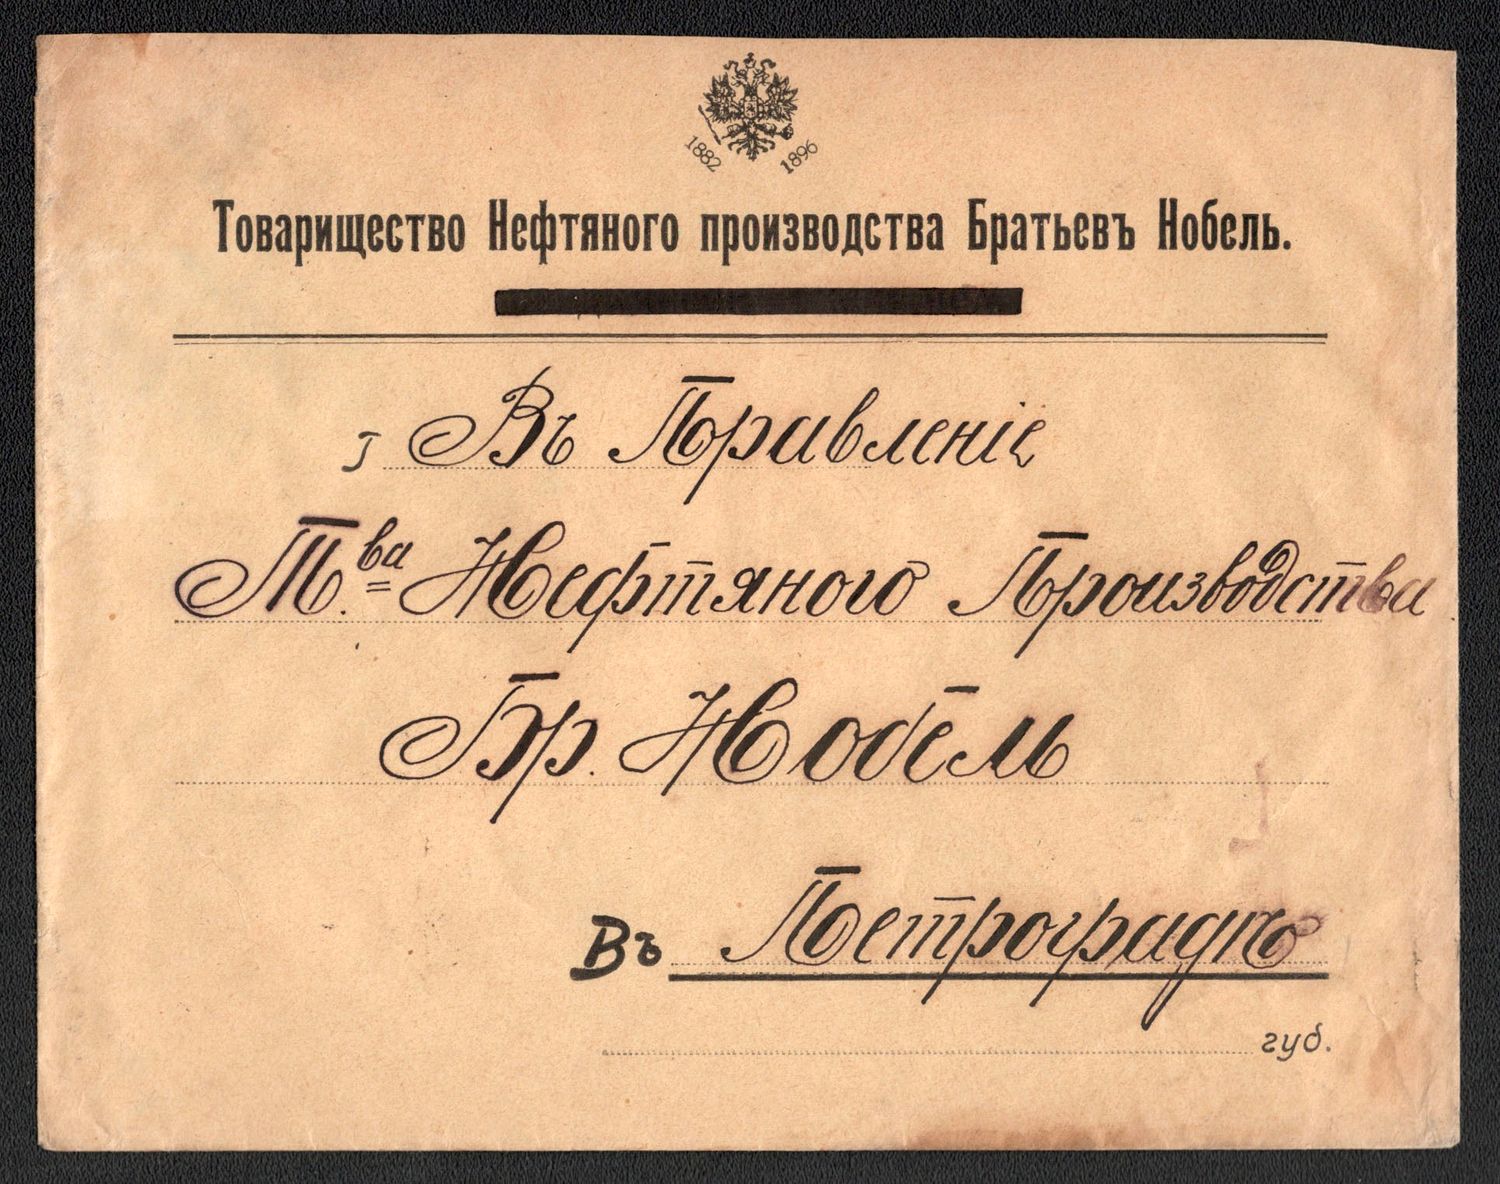 1882 1896
Товарищество Нефтяного производства Братьевъ Нобель.
Въ Правленіе
Т.ва Нефтяного Производства
Бр. Нобель
Въ Петроградѣ
губ.